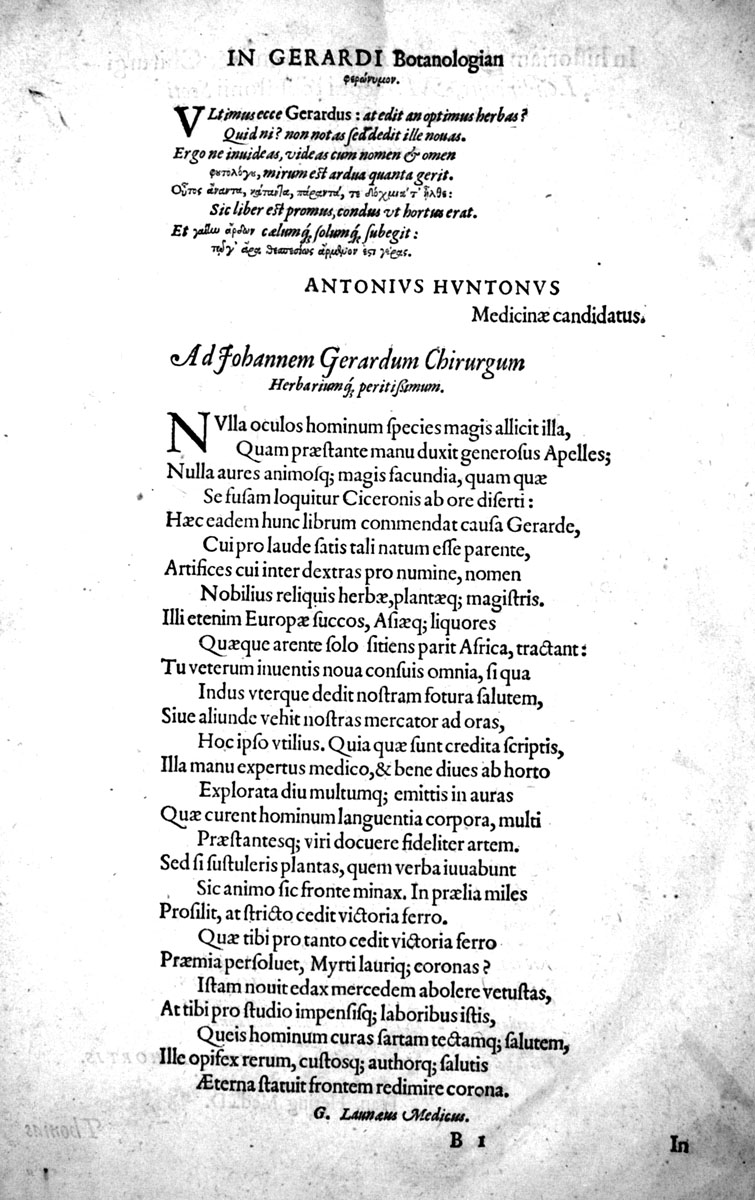 IN GERARDI Botanologian
φερώνυμον.
VLtimus ecce Gerardus: at edit an optimus herbas?
Quid ni? non notas sed dedit ille nouas.
Ergo ne inuideas, videas cum nomen & omen
φυτολόγε, mirum est ardua quanta gerit.
Οὗτος ἄναντα, κάταντα, πάραντά, τε δόχμιά τ' ἦλθε:
Sic liber est promus, condus vt hortus erat.
Et cælumq; solumq; subegit:
ἄρα θεσπεσίως γέρας.
ANTONIVS HVNTONVS
Medicinæ candidatus.
Ad Johannem Gerardum Chirurgum
Herbariumq; peritißimum.
NVlla oculos hominum ſpecies magis allicit illa,
Quam præſtante manu duxit generoſus Apelles;
Nulla aures animoſq; magis facundia, quam quæ
Se fuſam loquitur Ciceronis ab ore diſerti:
Hæc eadem hunc librum commendat cauſa Gerarde,
Cui pro laude ſatis tali natum eſſe parente,
Artifices cui inter dextras pro numine, nomen
Nobilius reliquis herbæ, plantæq; magiſtris.
Illi etenim Europæ ſuccos, Aſiæq; liquores
Quæque arente ſolo ſitiens parit Africa, tractant:
Tu veterum inuentis noua conſuis omnia, ſi qua
Indus vterque dedit noſtram fotura ſalutem,
Siue aliunde vehit noſtras mercator ad oras,
Hoc ipſo vtilius. Quia quæ ſunt credita ſcriptis,
Illa manu expertus medico, & bene diues ab horto
Explorata diu multumq; emittis in auras
Quæ curent hominum languentia corpora, multi
Præſtantesq; viri docuere fideliter artem.
Sed ſi ſuſtuleris plantas, quem verba iuuabunt
Sic animo ſic fronte minax. In prælia miles
Proſilit, at ſtricto cedit victoria ferro.
Quæ tibi pro tanto cedit victoria ferro
Præmia perſoluet, Myrti lauriq; coronas?
Iſtam nouit edax mercedem abolere vetuſtas,
At tibi pro ſtudio impenſiſq; laboribus iſtis,
Queis hominum curas ſartam tectamq; ſalutem,
Ille opifex rerum, cuſtosq; authorq; ſalutis
Æterna ſtatuit frontem redimire corona.
G. Launæus Medicus.
B 1
In